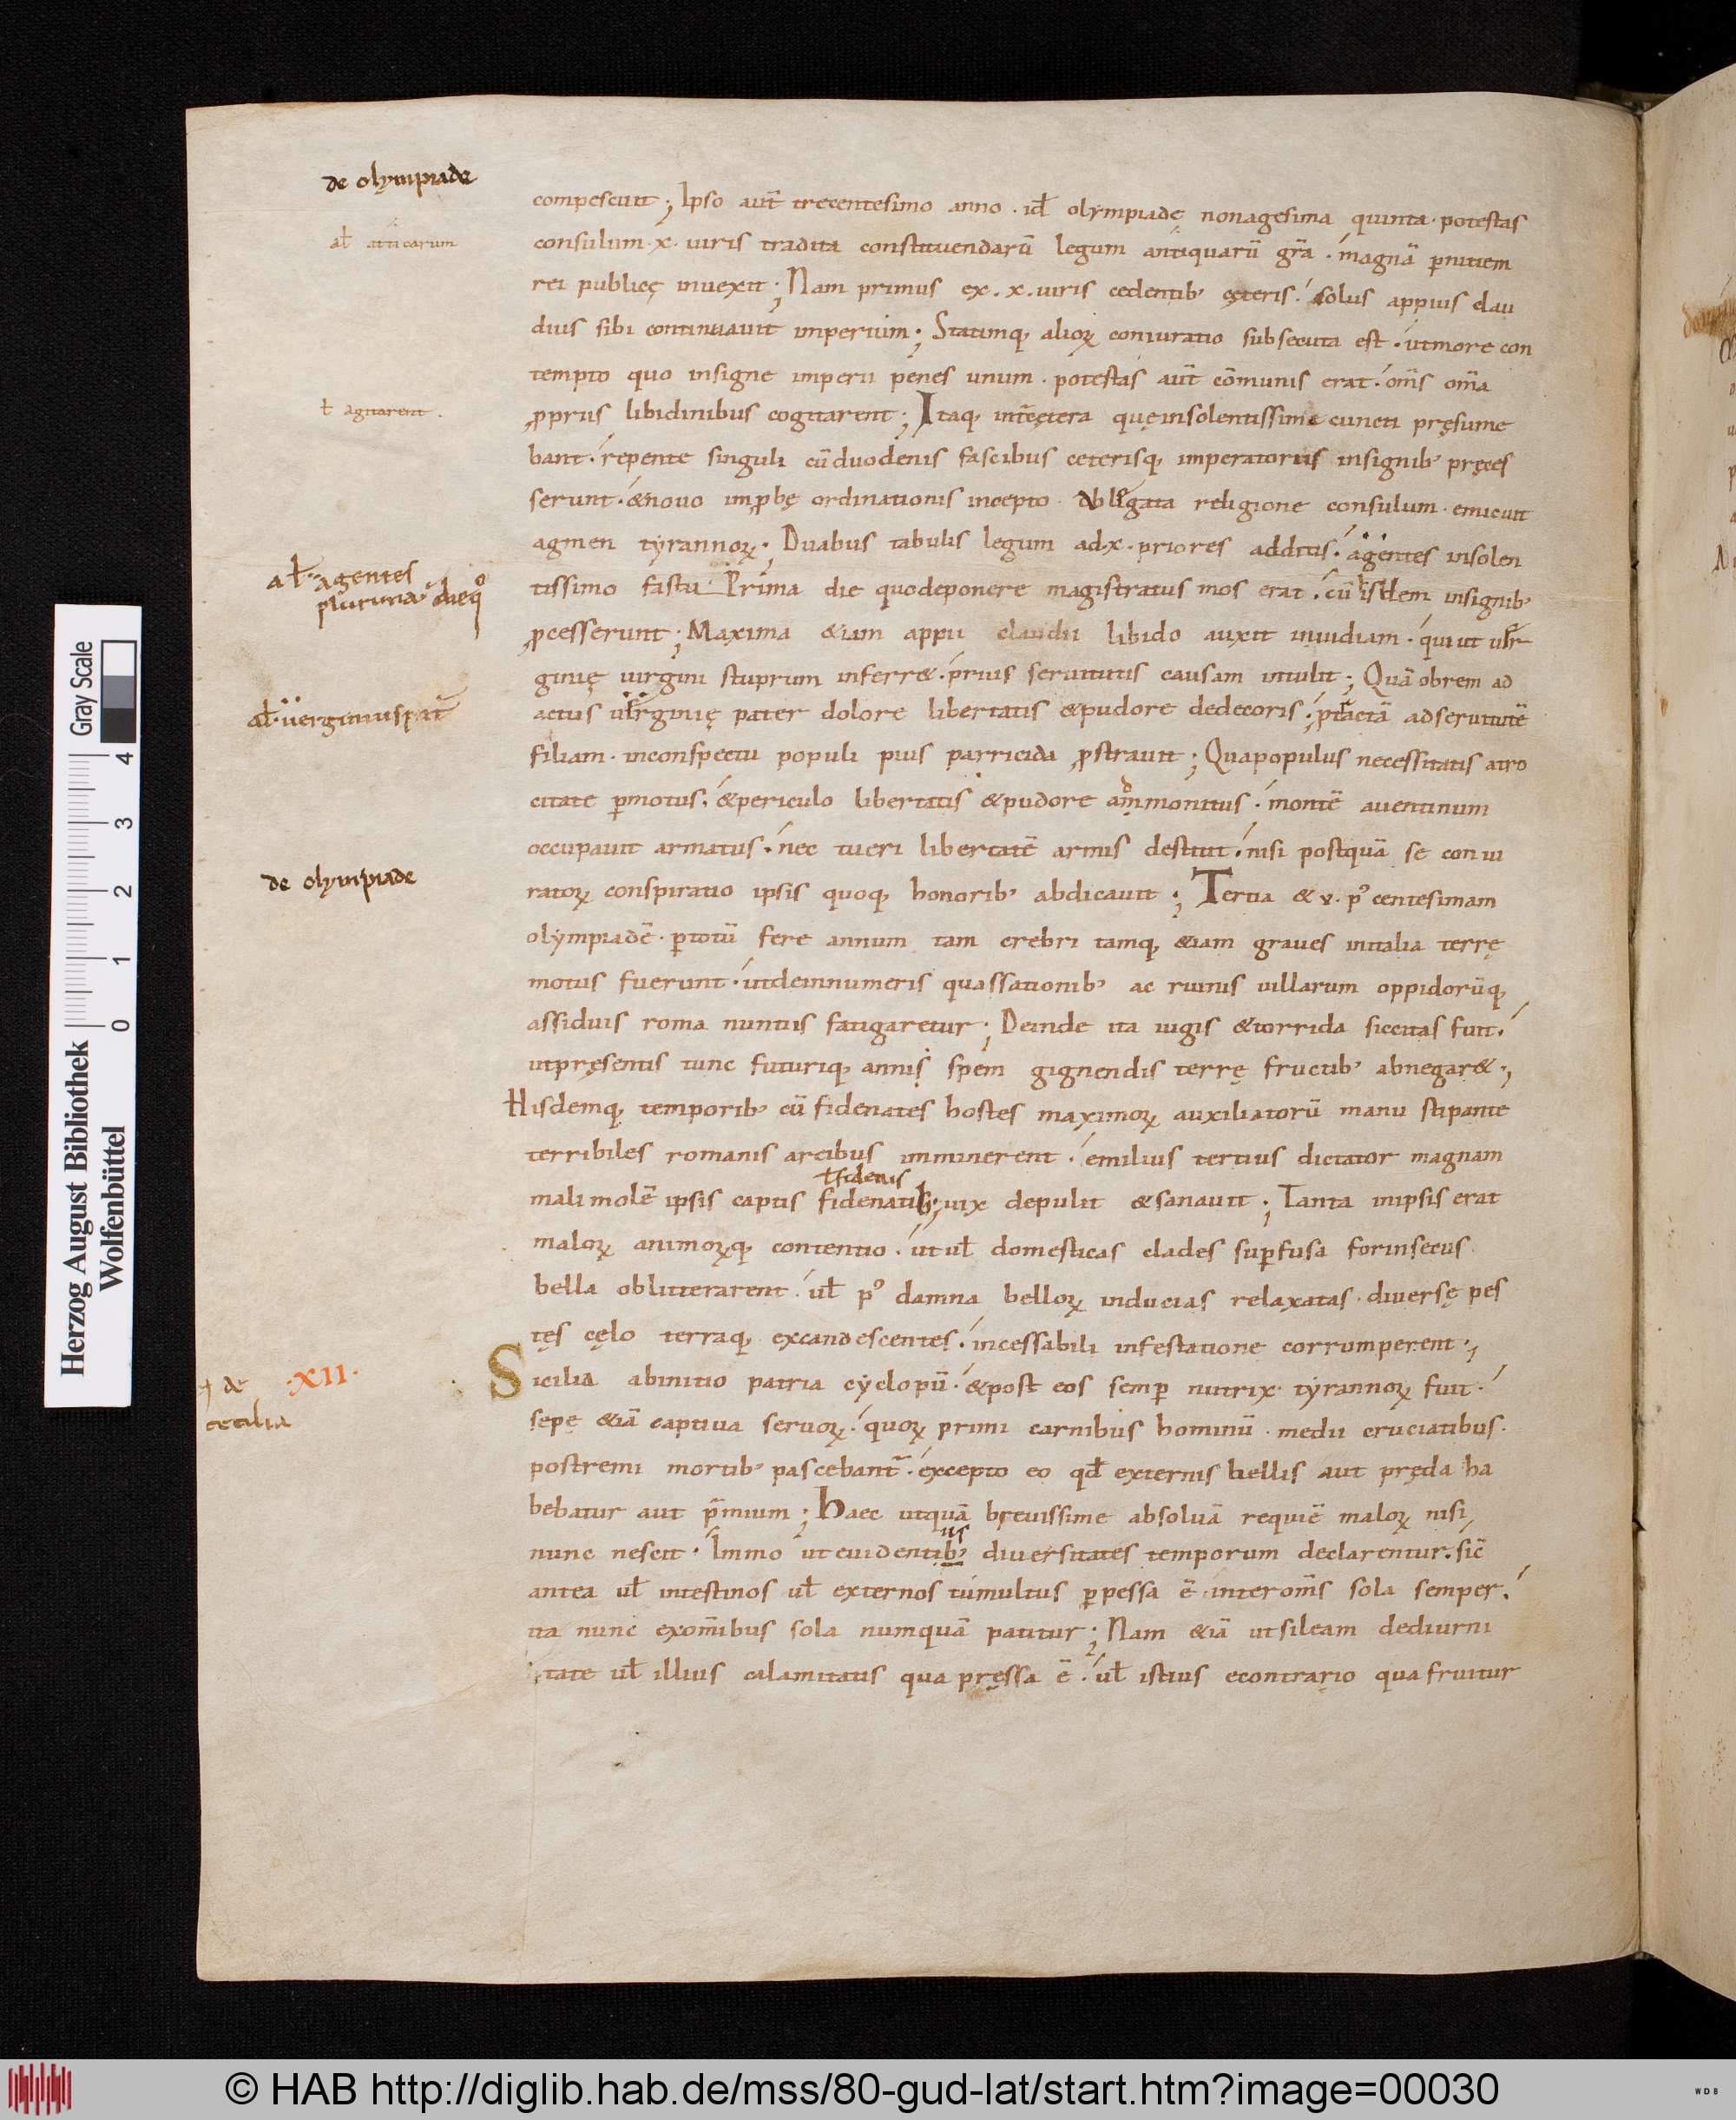 de olympiade
compescuit; Ipso aut̄ trecentesimo anno · id̄ olympiade nonagesima quinta · potestas
al̄ atticarum
consulum · x · uiris tradita constituendarū legum antiquarū gr̄a · magnā ꝑnitiem
rei publicę inuexit; Nam primus ex · x · uiris cedentib; cęteris · solus appius clau
dius sibi continuauit imperium; Statimq; alioꝝ coniuratio subsecuta est · ut more con
tempto quo insigne imperii penes unum · potestas aut̄ cōmunis erat · om̄s om̄a
ł agitarent ·
ꝓpriis libidinibus cogitarent; Itaq; int̄ cętera quę insolentissime cuncti pręsume
bant · repente singuli cū duodenis fascibus ceterisq; imperatoriis insignib; pręces
serunt · & nouo imꝓbę ordinationis incepto · ablegata religione consulum · emicuit
agmen tyrannoꝝ · Duabus tabulis legum ad · x · priores additis · agentes insolen
al̄ · agentes
plurima die qͦ
tissimo fastu Prima die quo deponere magistratus mos erat · cū isdem insignib;
ꝓcesserunt; Maxima &iam appii claudii libido auxit inuidiam · qui ut uir
ginię uirgini stuprum inferr& · prius seruitutis causam intulit; Quā obrem ad
al̄ · uerginius pat̄
actus uirginię pater dolore libertatis & pudore dedecoris; ꝑtractā ad seruitutē
filiam · in conspectu populi pius parricida ꝓstrauit; Qua populus necessitatis atro
citate ꝑmotus · & periculo libertatis & pudore ammonitus · montē auentinum
occupauit armatus · nec tueri libertatē armis destitit · nisi postquā se coniu
de olympiade
ratoꝝ conspiratio ipsis quoq; honorib; abdicauit; Tertia & v · p᷒ centesimam
olympiadē · ꝑ totū fere annum tam crebri tamq; &iam graues in italia terrę
motus fuerunt · ut de innumeris quassationib; ac ruinis uillarum oppidorūq;
assiduis roma nuntiis fatigaretur; Deinde ita iugis & torrida siccitas fuit ·
ut pręsentis tunc futuriq; annis spem gignendis terrę fructib; abnegar&;
Hisdemq; temporib; cū fidenates hostes maximoꝝ auxiliatorū manu stipante
terribiles romanis arcibus imminerent · emilius tertius dictator magnam
ł fidenis
mali molē ipsis captis fidenatib; uix depulit & sanauit; Tanta in ipsis erat
maloꝝ animoꝝq; contentio · ut ul̄ domesticas clades suꝑfusa forinsecus
bella obliterarent · ul̄ p᷒ damna belloꝝ inducias relaxatas · diuersę pes
tęs cęlo terraq; excandescentes · incessabili infestatione corrumperent;
de ·XII·
cecilia
Sicilia ab initio patria cyclopū · & post eos semꝑ nutrix tyrannoꝝ fuit ·
sepę &iā captiua seruoꝝ · quoꝝ primi carnibus hominū · medii cruciatibus ·
postremi mortib; pascebant᷑ · excepto eo qd̄ externis bellis aut pręda ha
bebatur aut p̄mium; Haec ut quā breuissime absoluā requiē maloꝝ nisi
us
nunc nescit · Immo ut euidentib; diuersitates temporum declarentur · sic̄
antea ul̄ intestinos ul̄ externos tumultus ꝑpessa ē inter om̄s sola semper ·
ita nunc ex om̄ibus sola numquā patitur; Nam &iā ut sileam de diurni
tate ul̄ illius calamitatis qua pręssa ē · ul̄ istius econtrario qua fruitur
Herzog August Bibliothek
Wolfenbüttel
0 1 2 3 4
Gray Scale
© HAB http://diglib.hab.de/mss/80-gud-lat/start.htm?image=00030
W D B